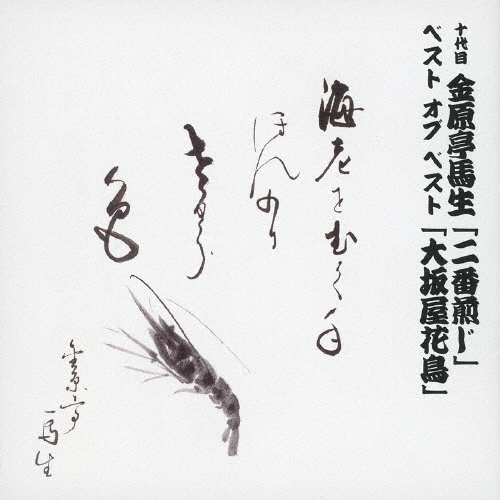 十代目 金原亭馬生「二番煎じ」
ベスト オブ ベスト「大坂屋花鳥」
海老をむく手
ほんのり
金原亭
馬生